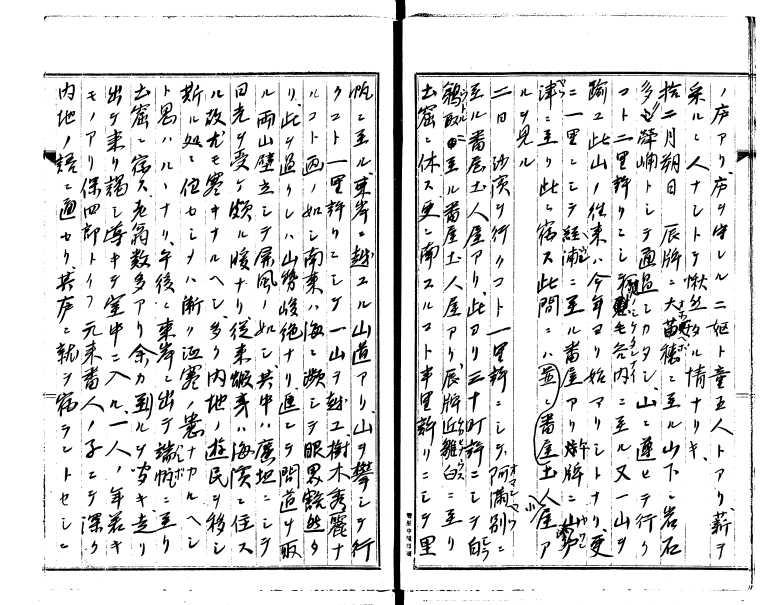 ノ庐アリ庐ヲ守レル二嫗ト童五人トアリ薪ヲ
采ルニ人ナントシテ愀然タル情ナリキ
拾二月朔日 辰牌ニ大苗穂ニ至ル山下ニ岩石
多ク トシテ通過シカタシ山ニ遵ヒテ行ク
コト二里許リニシテ 毛谷内ニ至ル又一山ヲ
踰ユ此山ノ往来ハ今年ヨリ始マリシトナリ更
ニ一里ニシテ 浦ニ至ル番屋アリ 牌ニ山
津ニ至リ此ニ宿ス此間ニハ 番屋土人屋ア
ルヲ見ル
二日 沙濱ヲ行クコト一里許ニシテ阿満別ニ
至ル番屋土人屋アリ此ヨリ三十町許ニシテ白
鵜取ニ至ル番屋土人屋アリ辰牌近 白ニ至リ
土窟ニ休ス更ニ南スルコト半里許リニシテ里
帆ニ至ル東岸ニ越ユル山道アリ山ヲ攀シテ行
クコト一里許リニシテ一山ヲ越ユ樹木秀麗ナ
ルコト画ノ如シ南東ハ海ニ瀕シテ眼界豁然タ
リ此ヲ過クレハ山勢峻絶ナリ進ンテ間道ヲ取
ル両山壁立シテ屏風ノ如シ其中ハ廣坦ニシテ
日光ヲ受ケ頗ル暖ナリ従来蝦夷ハ海濱ニ住ス
ル故尤モ寒キナルヘシ多ク内地ノ遊民ヲ移シ
斯ル処ニ住セシメハ漸ク沍寒ノ患ナカルヘシ
ト思ハルヽナリ午後ニ東岸ニ出テ 帆ニ至リ
土窟ニ宿ス老翁数多アリ余カ到ルヲ聞キ走リ
出テ来リ謁シ導キテ室中ニ入ル一人ノ年若キ
モノアリ保四郎トイフ元来番人ノ子ニテ深ク
内地ノ語ニ通セリ其庐ニ就テ宿ラントセシニ